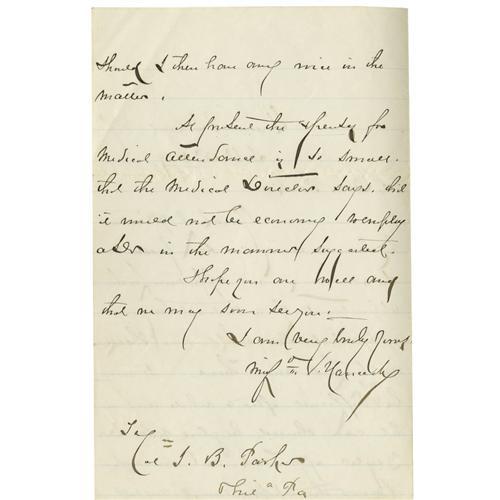 Should I then have any voice in the
matter.
At present the expense for
Medical attendance is so small.
that the Medical Director says. that
it would not be economy to employ
a Dr in the manner suggested.
I hope you are well and
that we may soon see you.
I am very truly yours
Winf d S. Hancock
To
Col I. B. Parker
Phil a Pa